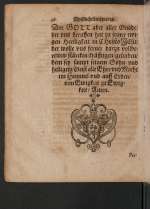 Der GOTT aber aller Gnade
der uns beruffen hat zu seiner ewi-
gen Herrligkeit in Christo JEsu
der wolle uns ferner
stärcken kräfftigen gründen
dem sey sampt seinem Sohne und
heiligem Geist alle Ehre und Macht
im Himmel und auff Erden
von Ewigkeit zu Ewig-
keit / Amen.